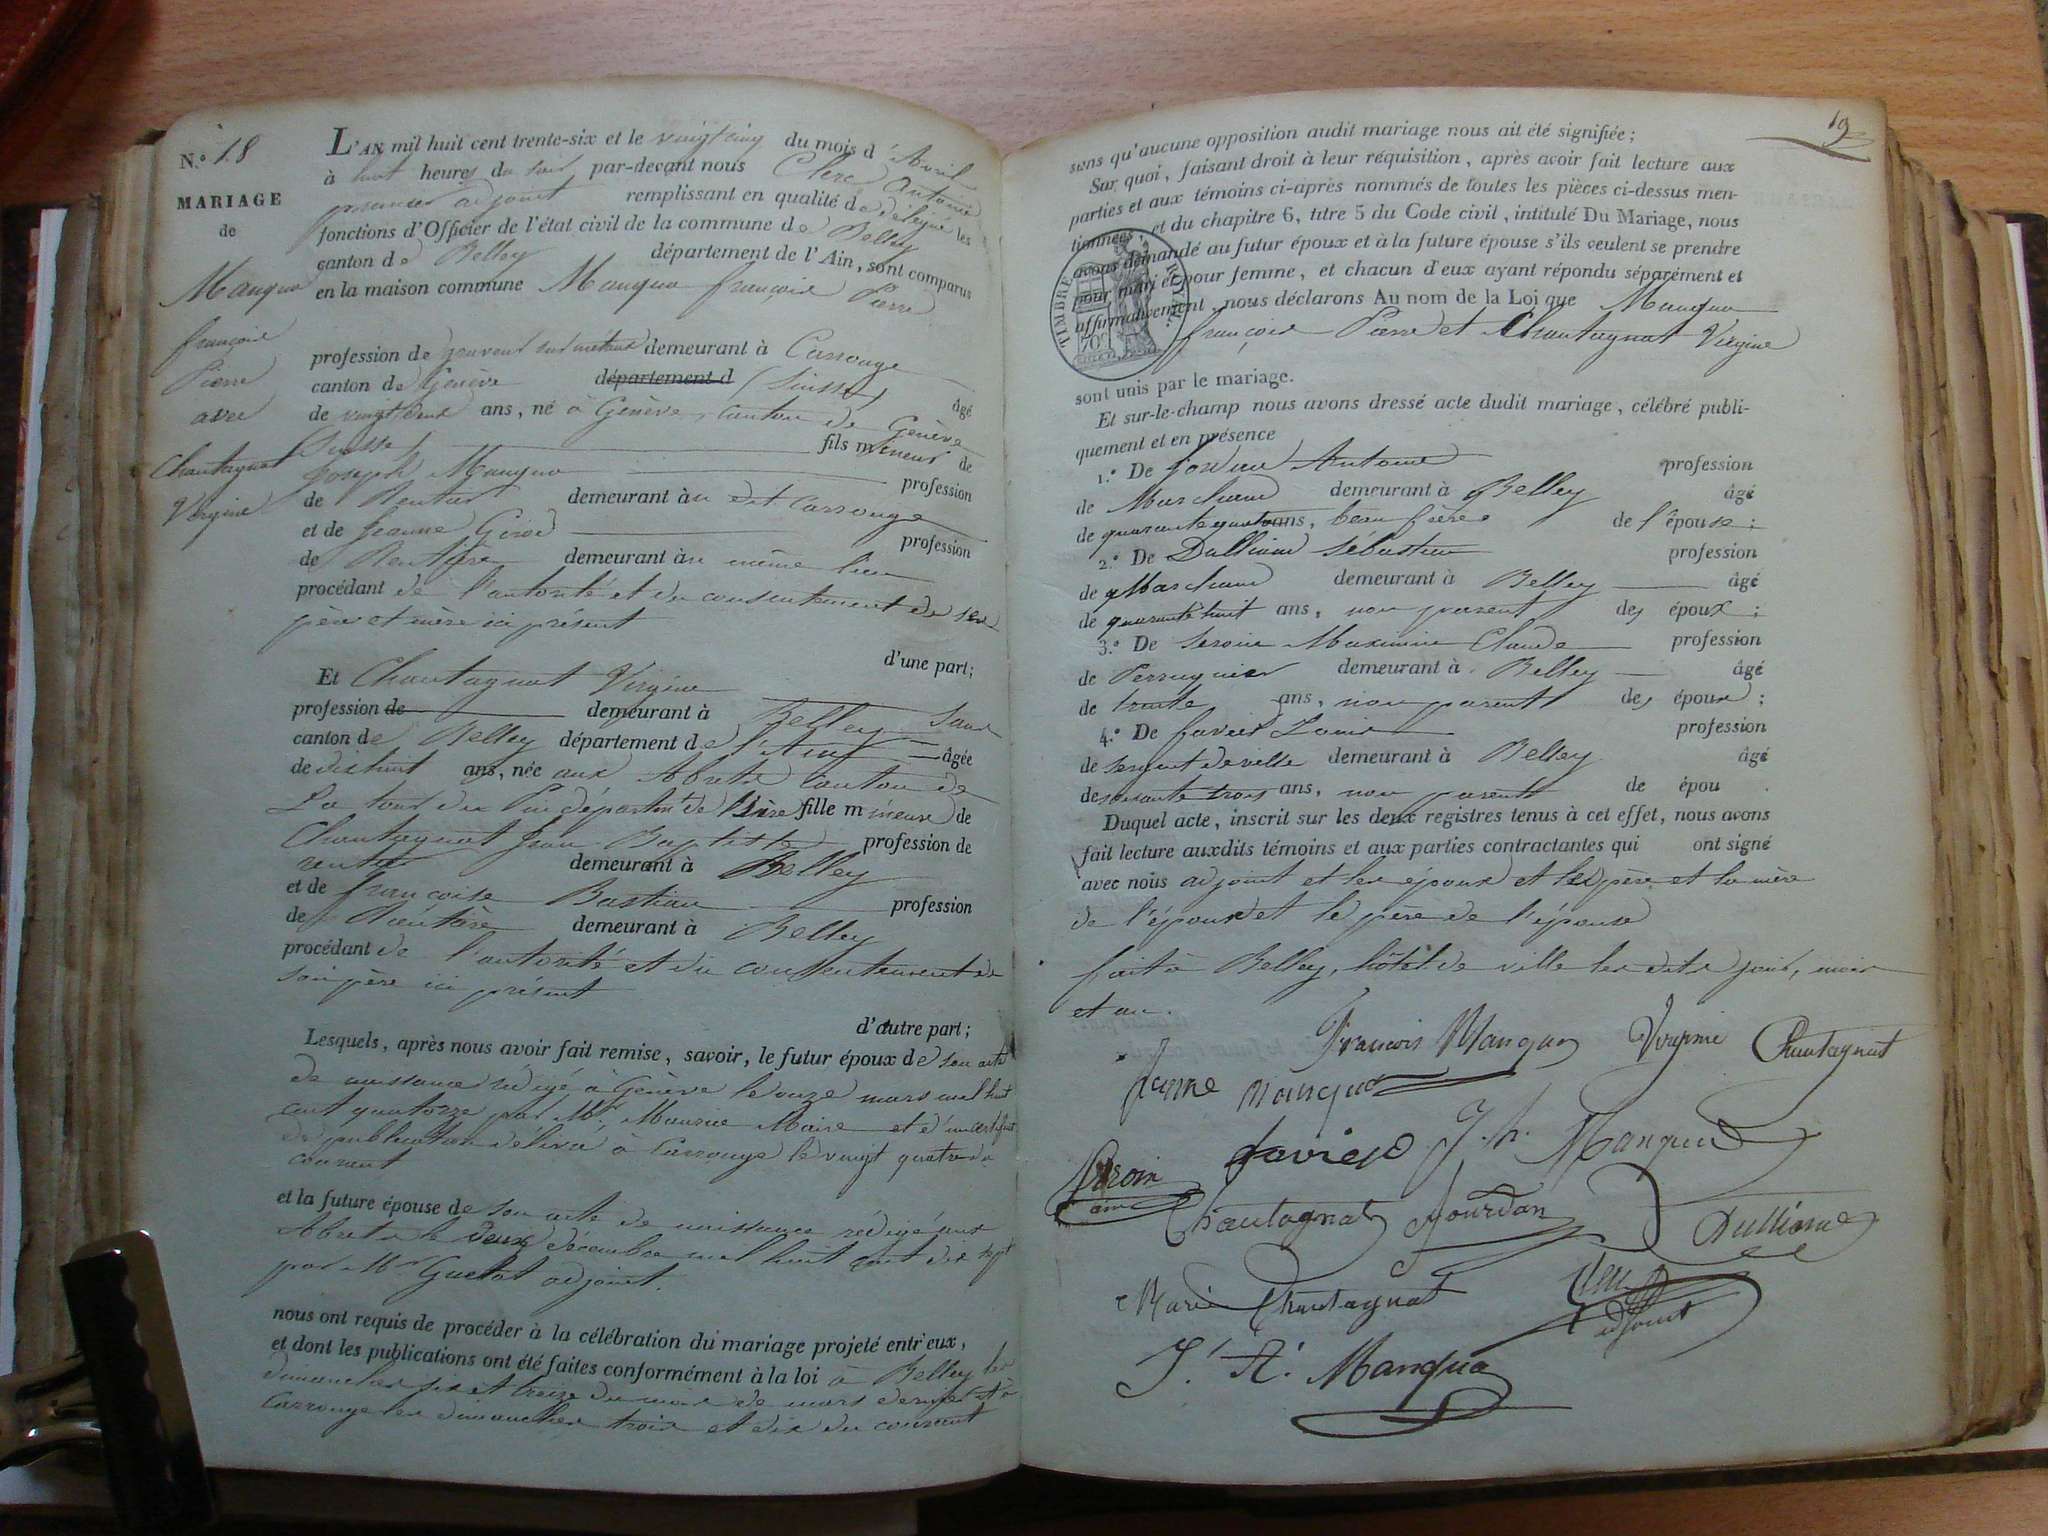 N.º 18
MARIAGE
de
Manqua
françois
Pierre
avec
Chautagnat
Virginie
L'AN mil huit cent trente-six et le vingt cinq du mois d'Avril
à huit heures du soir, par-devant nous Clerc Antoine
premier adjoint remplissant en qualité de délégué les
fonctions d'Officier de l'état civil de la commune de Belley
canton de Belley département de l'Ain, sont comparus
en la maison commune Manqua françois Pierre
profession de graveur sur métaux demeurant à Carrouge
canton de Genève département d (Suisse) âgé
de vingt deux ans, né à Genève, canton de Genève
Suisse fils mineur de
Joseph Manqua profession
de Rentier demeurant àu dit Carrouge
et de Jeanne profession
de Rentière demeurant àu même lieu
procédant de l'autorité et du consentement de ses
père et mère ici présent
d'une part;
Et Chautagnat Virginie
profession de demeurant à Belley sans
canton de Belley département de l'Ain âgée
de dixhuit ans, née aux Abrets canton de
La tour du Pin départmt de l'Isère fille mineure de
Chautagnat Jean Baptiste profession de
rentier demeurant à Belley
et de françoise Bastian profession
de Rentière demeurant à Belley
procédant de l'autorité et du consentement de
son père ici présent
d'autre part;
Lesquels, après nous avoir fait remise, savoir, le futur époux de son acte
de naissance rédigé à Genève le onze mars mil huit
cent quatorze par Mr. Maurice Maire et d'un certificat
de publication délivré à Carrouge le vingt quatre du
courant
et la future épouse de son acte de naissance rédigé aux
Abrets le deux décembre mil huit cent dix sept
par Mr Guetat adjoint.
nous ont requis de procéder à la célébration du mariage projeté entr'eux,
et dont les publications ont été faites conformément à la loi à Belley les
dimanches six et treize du mois de mars dernier et à
Carrouge les dimanches trois et dix du courant
19
sans qu'aucune opposition audit mariage nous ait été signifiée;
Sur quoi, faisant droit à leur réquisition, après avoir fait lecture aux
parties et aux témoins ci-après nommés de toutes les pièces ci-dessus men-
tionnées, et du chapitre 6, titre 5 du Code civil, intitulé Du Mariage, nous
avons demandé au futur époux et à la future épouse s'ils veulent se prendre
pour mari et pour femme, et chacun d'eux ayant répondu séparément et
affirmativement, nous déclarons Au nom de la Loi que Manqua
françois Pierre et Chautagnat Virginie
TIMBRE ROYAL
sont unis par le mariage.
Et sur-le-champ nous avons dressé acte dudit mariage, célébré publi-
quement et en présence
1.º De Jordan Antoine profession
de Marchand demeurant à Belley âgé
de quarante quatre ans, beau frère de l'épouse;
2.º De Dulliand Sébastien profession
de Marchand demeurant à Belley âgé
de quarante huit ans, non parent des époux;
3.º De Seroin Maximin Claude profession
de Perruquier demeurant à Belley âgé
de trente ans, non parent des époux;
4.º De favier Louis profession
de sergent de ville demeurant à Belley âgé
de soixante trois ans, non parent de épou
Duquel acte, inscrit sur les deux registres tenus à cet effet, nous avons
fait lecture auxdits témoins et aux parties contractantes qui ont signé
avec nous adjoint et les époux et les père et la mère
de l'époux et le père de l'épouse
fait à Belley, hôtel de ville les dits jour, mois
et an.
francois Manqua Virginie Chautagnat
Jeanne Manqua
favier J. h. Manqua
Seroin
Chautagnat Jourdan Dulliand
Marie Chautagnat Clerc
adjoint
J. A. Manqua